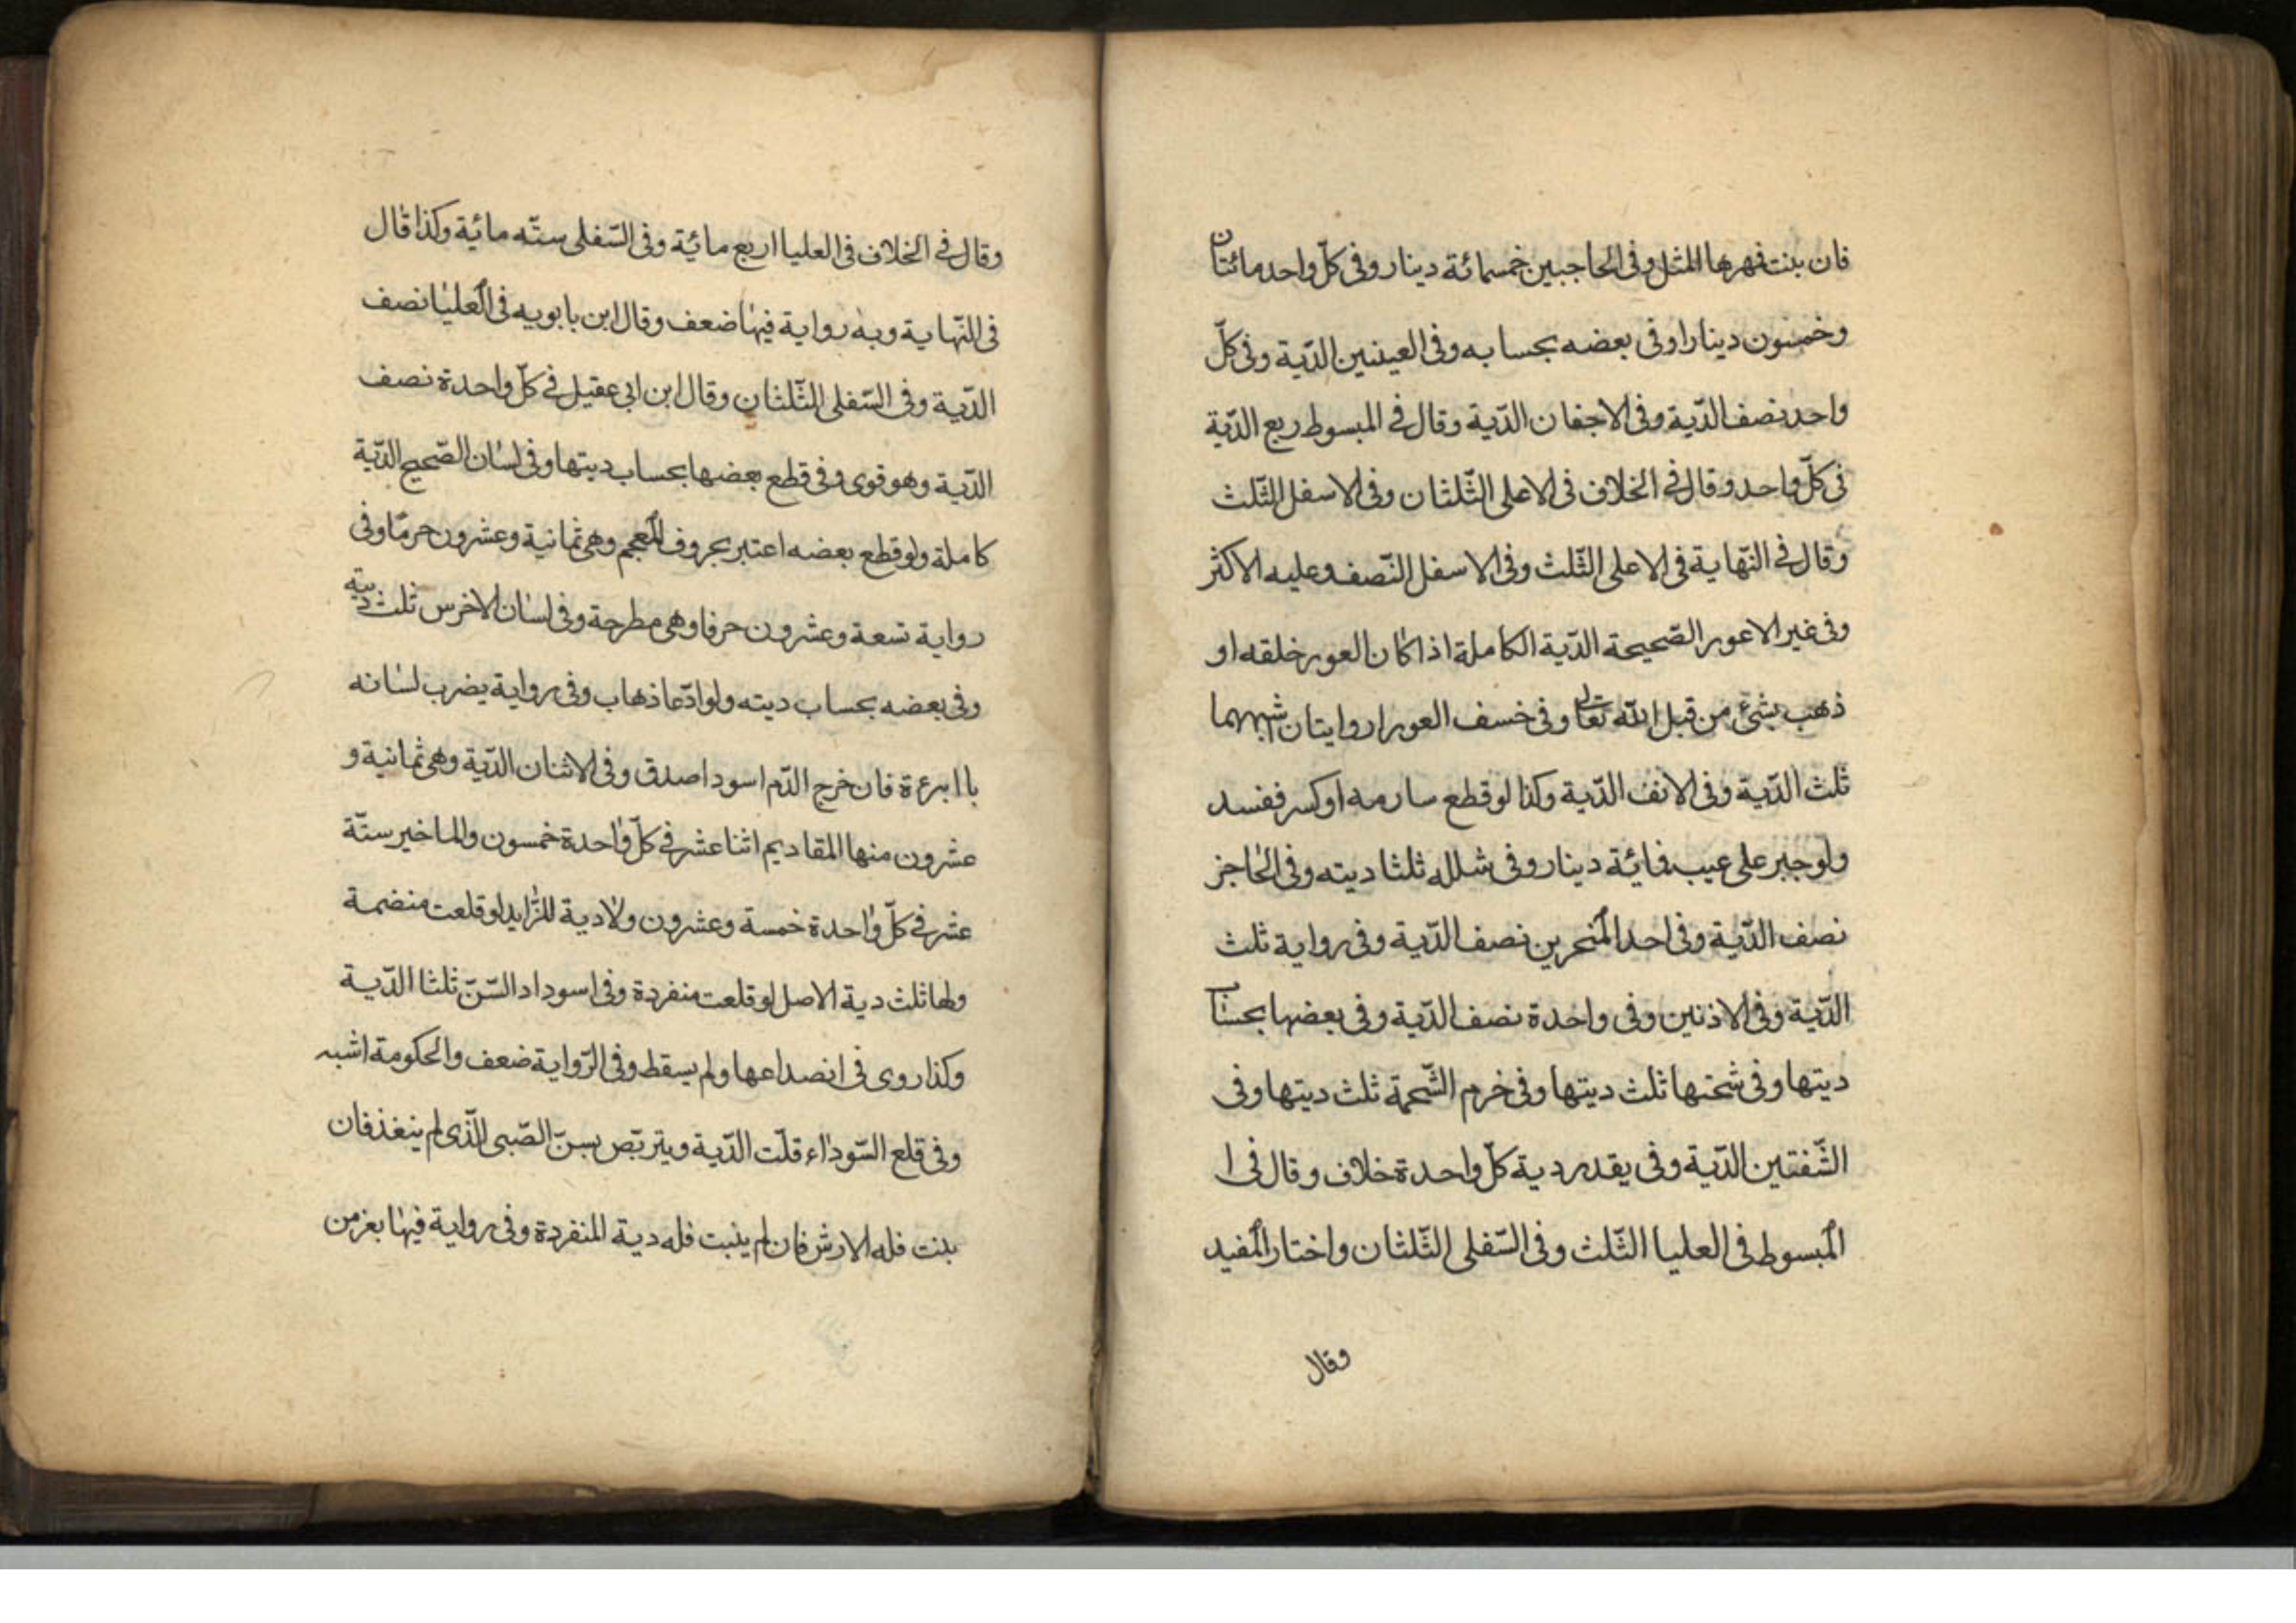 فان بنت فمهرها المثل وفى الحاجبين خمسمائة دينار وفى كلّ واحد مائتان
وخمسون دينارا وفى بعضه بحسابه وفى العينين الدّية وفى كلّ
واحد نصف الدّية وفى الاجفان الدّية وقال فى المبسوط ربع الدّية
فى كلّ واحد وقال فى الخلاف فى الاعلى الثّلثان وفى الاسفل الثّلث
وقال فى النّهاية فى الاعلى الثّلث وفى الاسفل النّصف وعليه الاكثر
وفى غير الاعور الصّحيحة الدّية الكاملة اذا كان العور خلقه او
ذهب بشئ من قبل الله تعالى وفى خسف العورا روايتان اشبههما
ثلث الدّية وفى الانف الدّية وكذا لو قطع سارمه او كسر ففسد
ولو جبر على عيب فمائة دينار وفى شلله ثلثا ديته وفى الحاجز
نصف الدّية وفى احد المنخرين نصف الدّية وفى رواية ثلث
الدّية وفى الاذنين وفى واحدة نصف الدّية وفى بعضها بحساب
ديتها وفى شحتها ثلث ديتها وفى خرم الشّحمة ثلث ديتها وفى
الشّفتين الدّية وفى يقدر دية كلّ واحدة خلاف وقال فى ا
المبسوط فى العليا الثّلث وفى السّفلى الثّلثان واختار المفيد
وقال
وقال فى الخلاف فى العليا اربع مائة وفى السّفلى ستّه مائية وكذا قال
فى النّهاية وبه رواية فيها ضعف وقال ابن بابويه فى العليا نصف
الدّية وفى السّفلى الثّلثان وقال ابن ابى عقيل فى كلّ واحدة نصف
الدّية وهو قوى وفى قطع بعضها بحساب ديتها وفى لسان الصّحيح الدّية
كاملة ولو قطع بعضه اعتبر بحروف المعجم وهى ثمانية وعشرون حرفا وفى
رواية تسعة وعشرون حرفا وهى مطرحة وفى لسان الاخرس ثلث دية
وفى بعضه بحساب ديته ولو ادّعا ذهاب وفى رواية يضرب لسانه
با ابرءة فان خرج الدّم اسود اصدق وفى الاثنان الدّية وهى ثمانية و
عشرون منها المقاديم اثنا عشر فى كلّ واحدة خمسون والماخير ستّة
عشر فى كلّ واحدة خمسة وعشرون ولادية للزّايد لو قلعت منضمة
ولها ثلث دية الاصل لو قلعت منفردة وفى اسوداد السّنّ ثلثا الدّية
وكذا روى فى انصداعها ولم يسقط وفى الرّواية ضعف والحكومة اشبه
وفى قلع السّوداء قلّت الدّية ويتربّص بسنّ الصّبى الّذى لم ينغذ فان
بنت فله الارش فان لم ينبت فله دية المنفردة وفى رواية فيها بغر من